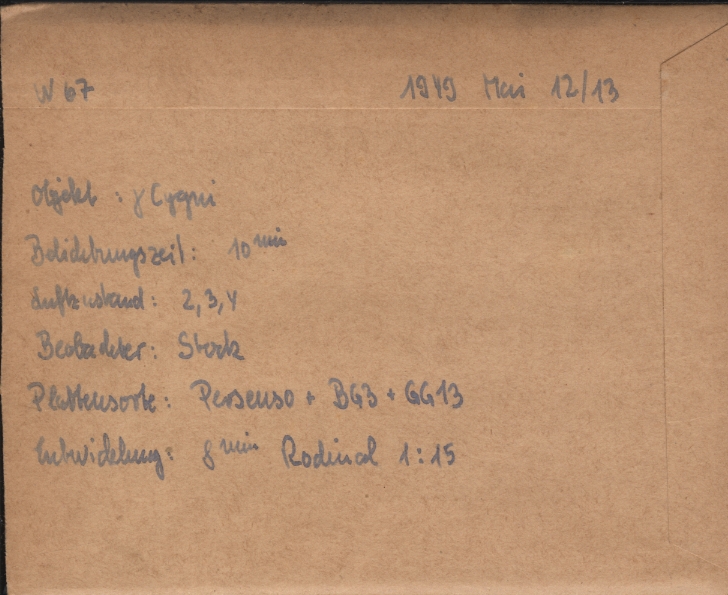 W 67 1949 Mai 12/13
Objekt : γ Cygni
Belichtungszeit : 10 min
Luftzustand : 2, 3, 4
Beobachter : Stock
Plattensorte : Persenso + BG3 + GG13
Entwicklung : 8 min Rodinal 1 : 15